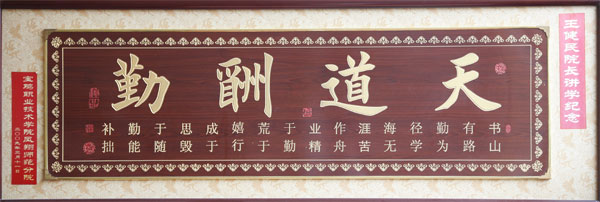 王健民院长讲学纪念
天道酬勤
书山有路勤为径学海无涯苦作舟业精于勤荒于嬉行成于思毁于随勤能补拙
宝鸡职业技术学院凤翔师范分院